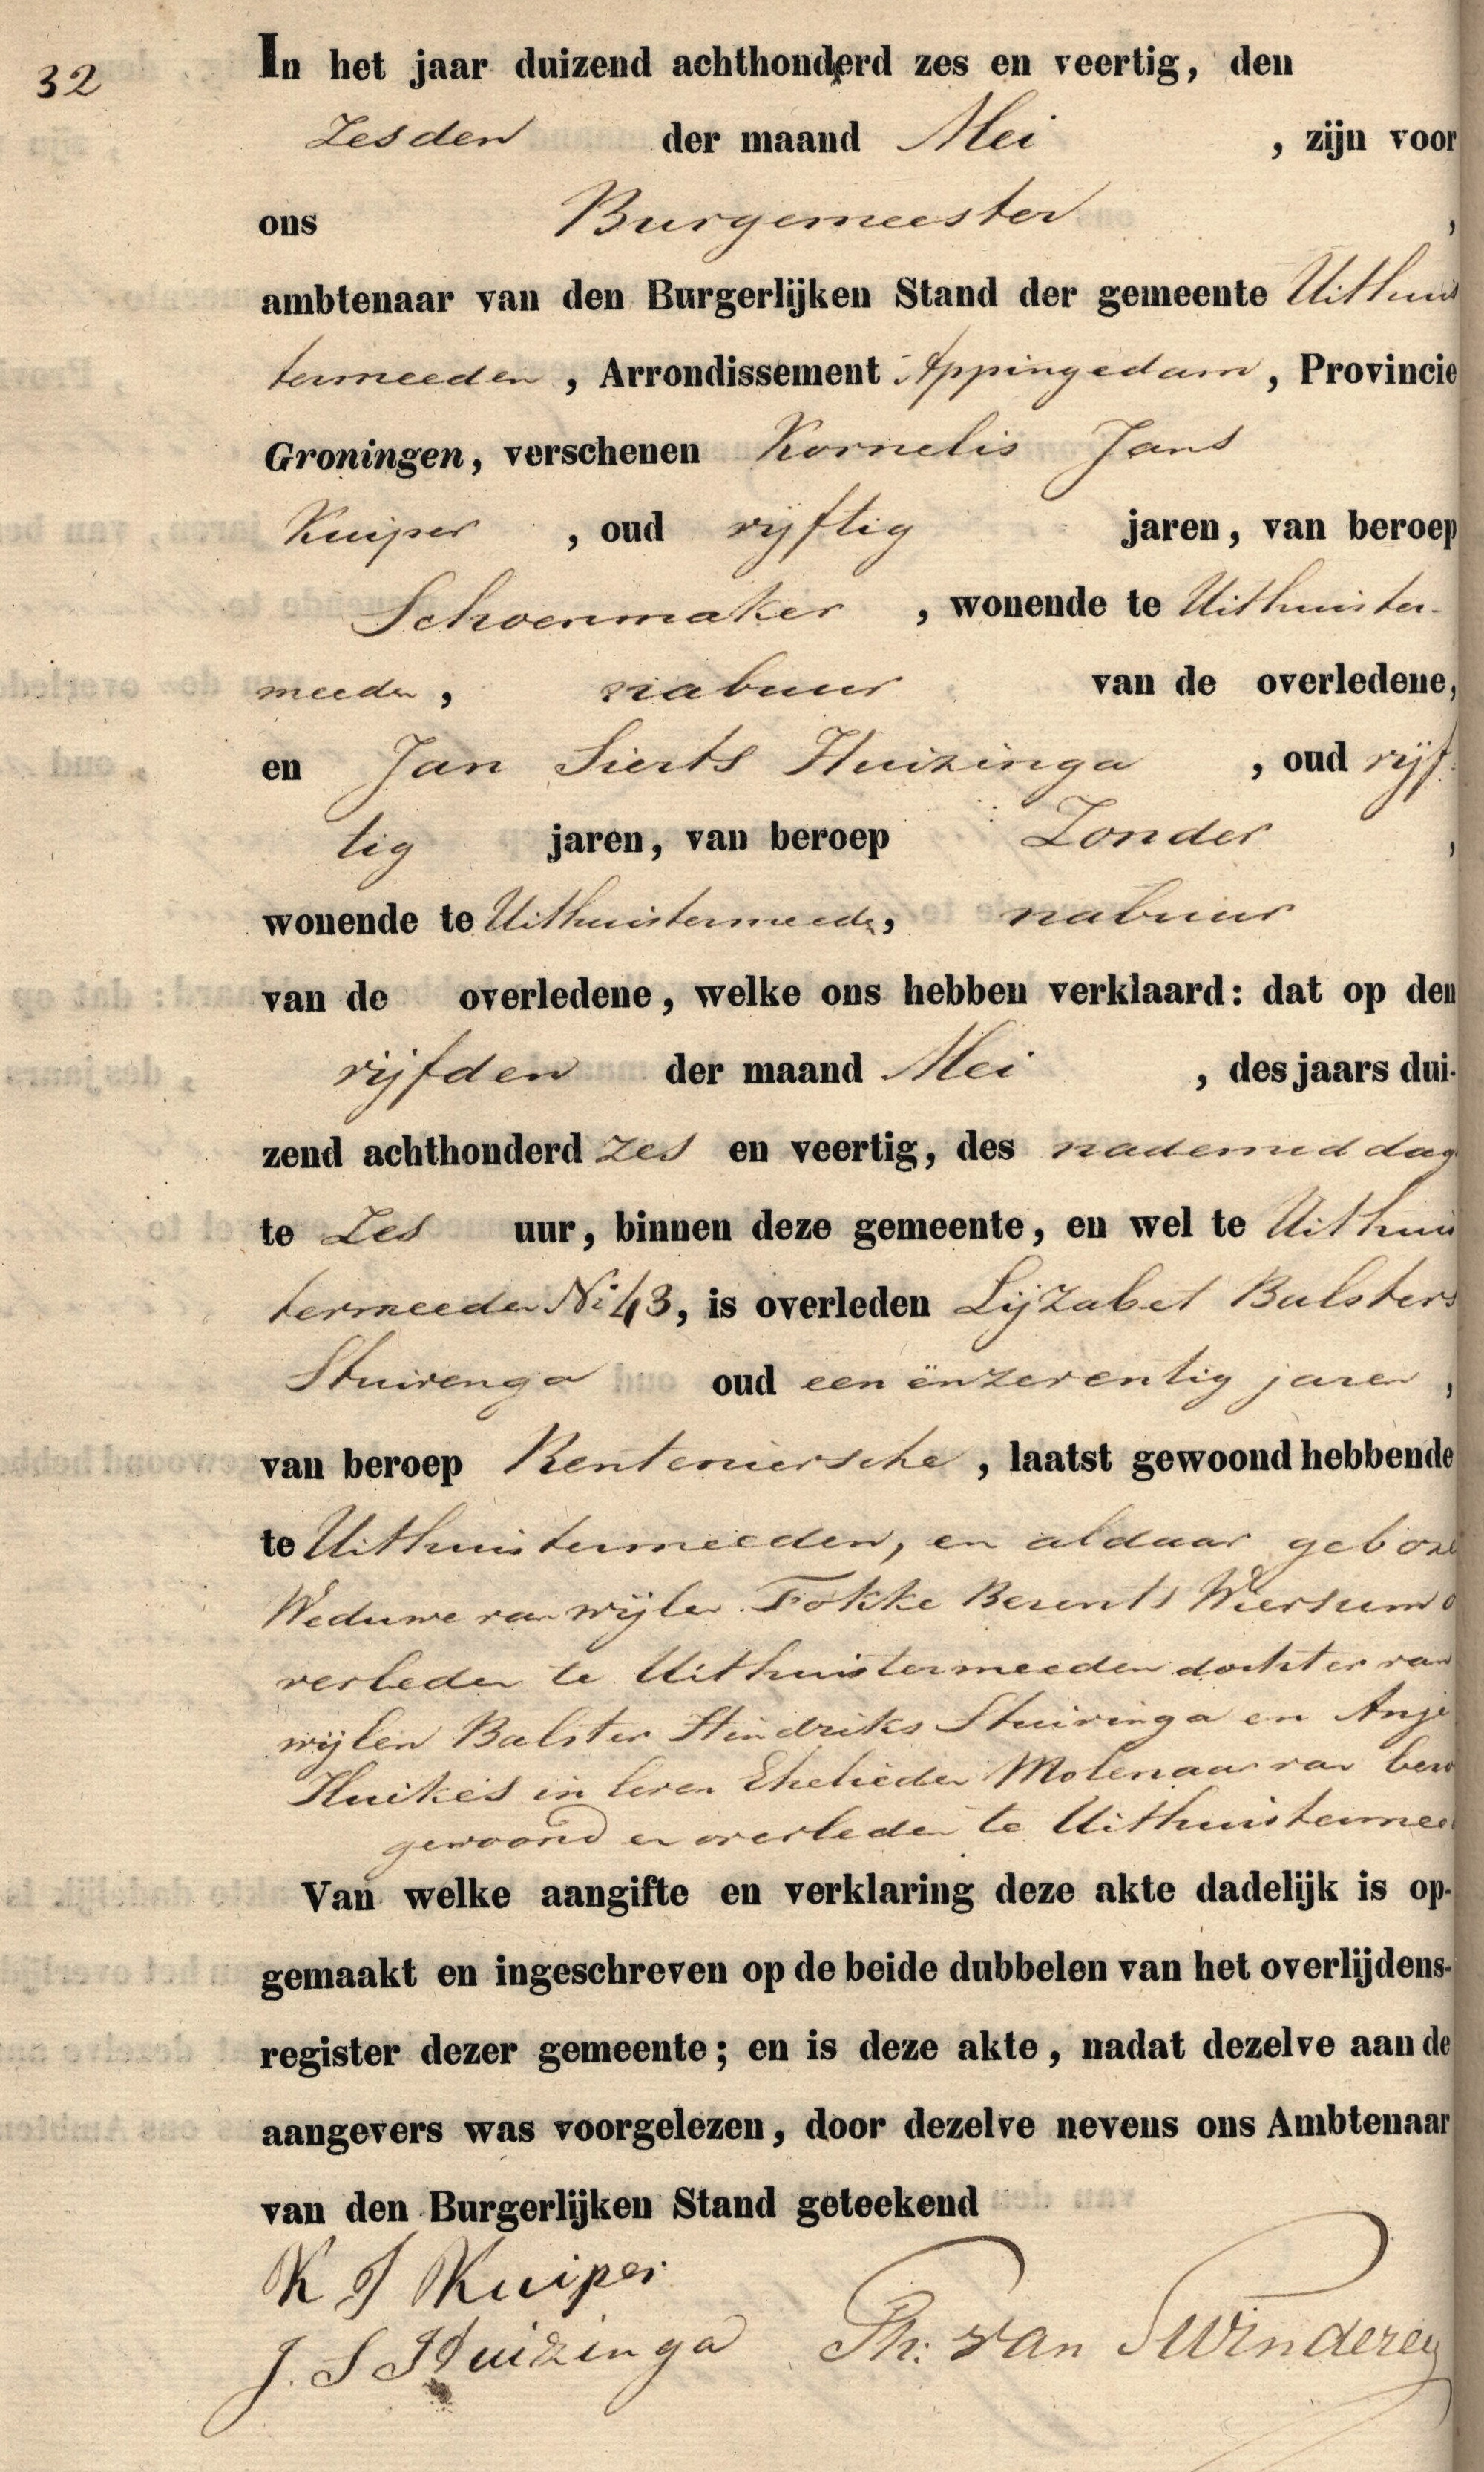 32
In het jaar duizend achthonderd zes en veertig, den
Zesden der maand Mei , zijn voor
ons Burgemeester ,
ambtenaar van den Burgerlijken Stand der gemeente Uithuis
termeeden , Arrondissement Appingedam , Provincie
Groningen, verschenen Kornelis Jans
Kuiper , oud vijftig jaren, van beroep
Schoenmaker , wonende te Uithuister-
meeden , nabuur van de overledene,
en Jan Sierts Huizinga , oud vijf
tig jaren, van beroep Zonder ,
wonende te Uithuistermeede, nabuur
van de overledene, welke ons hebben verklaard: dat op den
vijfden der maand Mei , des jaars dui-
zend achthonderd zes en veertig, des nademiddag
te Zes uur, binnen deze gemeente, en wel te Uithuis
termeeden No 43, is overleden Lijzabet Balsters
Stuivenga oud een ënzeventig jaren ,
van beroep Renteniersche , laatst gewoond hebbende
te Uithuistermeeden, en aldaar gebore
Weduwe van wijlen Fokke Berents Wiersum o
verleden te Uithuistermeeden dochter van
wijlen Balster Hindriks Stuivinga en Anje
Huikes in leven Ehelieden Molenaar van bero
gewoond en overleden te Uithuistermee
Van welke aangifte en verklaring deze akte dadelijk is op-
gemaakt en ingeschreven op de beide dubbelen van het overlijdens-
register dezer gemeente; en is deze akte, nadat dezelve aan de
aangevers was voorgelezen, door dezelve nevens ons Ambtenaar
van den Burgerlijken Stand geteekend
K J Kuiper
J. S Huizinga Th: van Swinderen